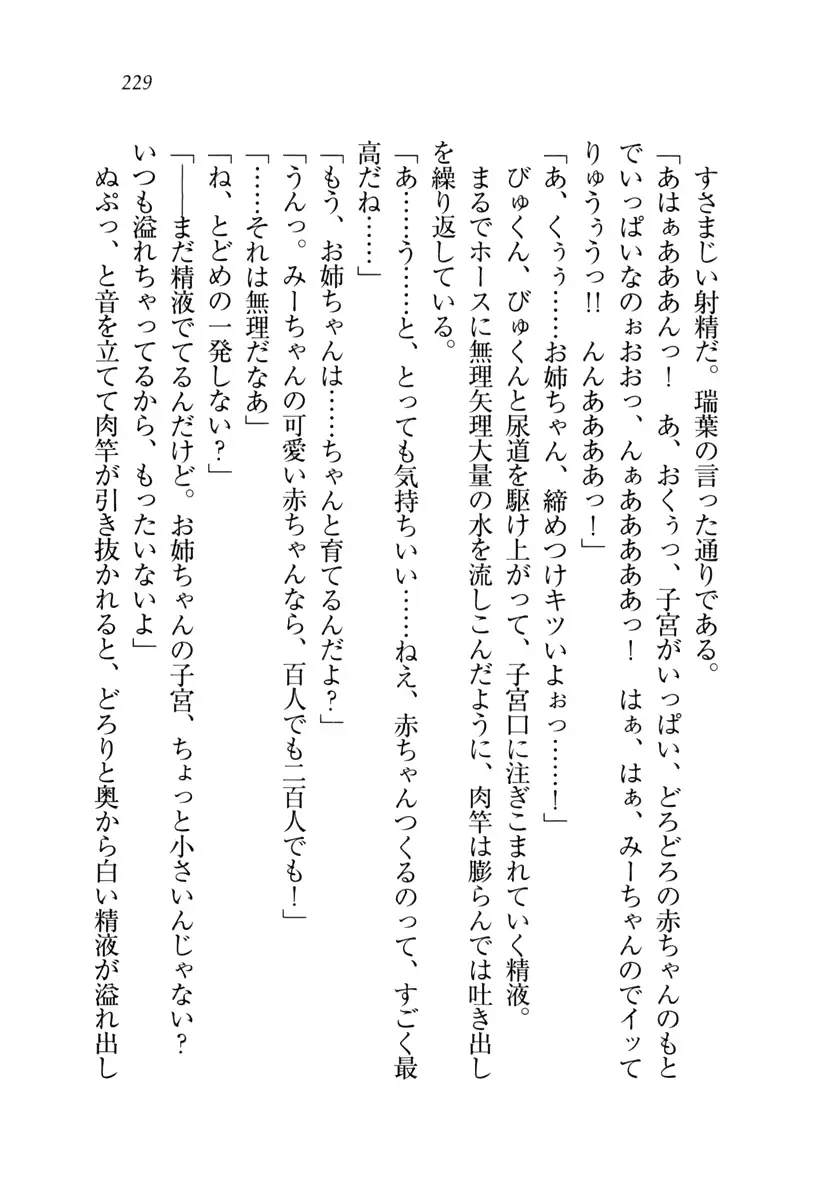 229
すさまじい射精だ。瑞葉の言った通りである。
「あはぁあああんっ！　あ、おくぅっ、子宮がいっぱい、どろどろの赤ちゃんのもと
でいっぱいなのぉおおっ、んぁああああぁっ！　はぁ、はぁ、みーちゃんのでイッて
りゅうぅうっ!!　んんああああっ！」
「あ、くぅぅ……お姉ちゃん、締めつけキツいよぉっ……！」
びゅくん、びゅくんと尿道を駆け上がって、子宮口に注ぎこまれていく精液。
まるでホースに無理矢理大量の水を流しこんだように、肉竿は膨らんでは吐き出し
を繰り返している。
「あ……う……と、とっても気持ちいい……ねえ、赤ちゃんつくるのって、すごく最
高だね……」
「もう、お姉ちゃんは……ちゃんと育てるんだよ？」
「うんっ。みーちゃんの可愛い赤ちゃんなら、百人でも二百人でも！」
「……それは無理だなあ」
「ね、とどめの一発しない？」
「――まだ精液でてるんだけど。お姉ちゃんの子宮、ちょっと小さいんじゃない？
いつも溢れちゃってるから、もったいないよ」
ぬぷっ、と音を立てて肉竿が引き抜かれると、どろりと奥から白い精液が溢れ出し